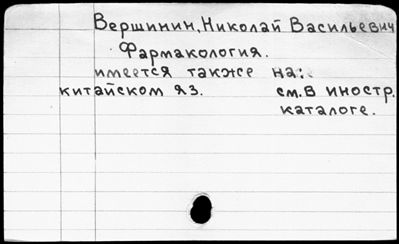 Вершинин, Николай Васильевич
Фармакология.
имеется также на:
китайском яз. см. в иностр.
каталоге.